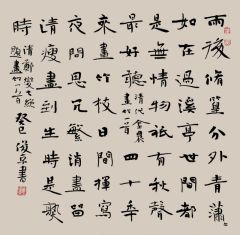 雨後脩篁分外青蕭
如在過溪亭世間都
是無情物只有秋聲
最好聽 清代金農畫竹一首 四十年
來畫竹枝日間揮寫
夜間思冗繁削盡留
清瘦畫到生時是熟
時 清鄭燮題畫竹一首 癸巳 書